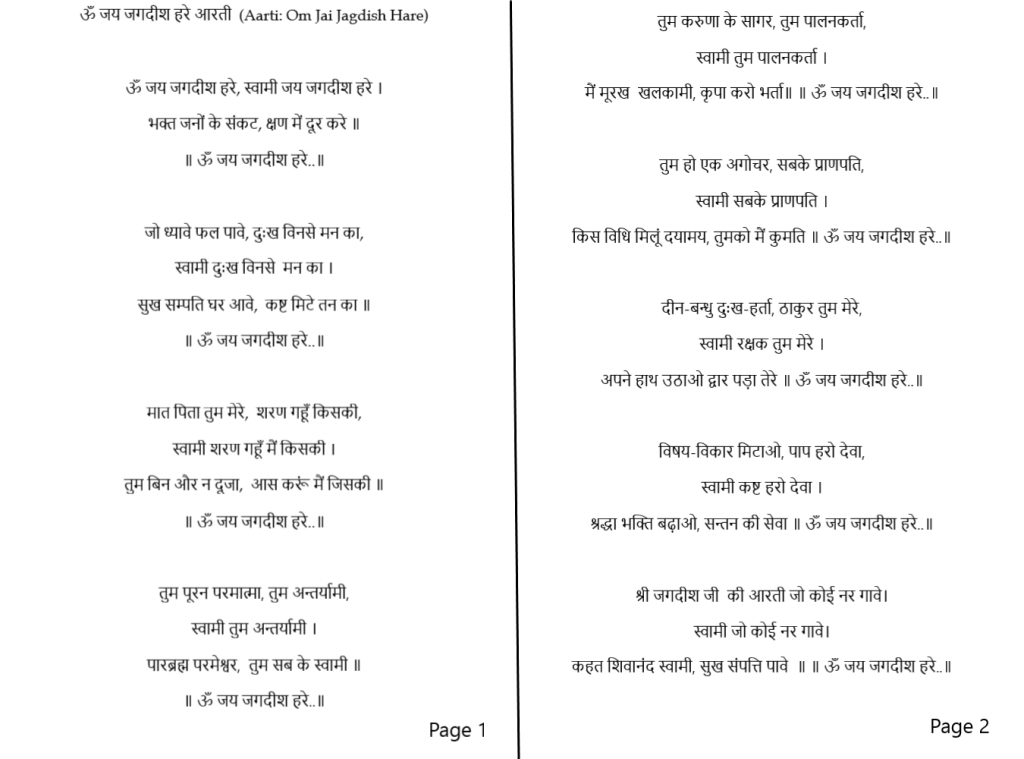 ॐ जय जगदीश हरे आरती (Aarti: Om Jai Jagdish Hare)
ॐ जय जगदीश हरे, स्वामी जय जगदीश हरे ।
भक्त जनों के संकट, क्षण में दूर करे ॥
॥ ॐ जय जगदीश हरे..॥
जो ध्यावे फल पावे, दुःख विनसे मन का,
स्वामी दुःख विनसे मन का ।
सुख सम्पति घर आवे, कष्ट मिटे तन का ॥
॥ ॐ जय जगदीश हरे..॥
मात पिता तुम मेरे, शरण गहूँ किसकी,
स्वामी शरण गहूँ मैं किसकी ।
तुम बिन और न दूजा, आस करूं मैं जिसकी ॥
॥ ॐ जय जगदीश हरे..॥
तुम पूरन परमात्मा, तुम अन्तर्यामी,
स्वामी तुम अन्तर्यामी ।
पारब्रह्म परमेश्वर, तुम सब के स्वामी ॥
॥ ॐ जय जगदीश हरे..॥
Page 1
तुम करुणा के सागर, तुम पालनकर्ता,
स्वामी तुम पालनकर्ता ।
मैं मूरख खलकामी, कृपा करो भर्ता॥ ॥ ॐ जय जगदीश हरे..॥
तुम हो एक अगोचर, सबके प्राणपति,
स्वामी सबके प्राणपति ।
किस विधि मिलूं दयामय, तुमको मैं कुमति ॥ ॐ जय जगदीश हरे..॥
दीन-बन्धु दुःख-हर्ता, ठाकुर तुम मेरे,
स्वामी रक्षक तुम मेरे ।
अपने हाथ उठाओ द्वार पड़ा तेरे ॥ ॐ जय जगदीश हरे..॥
विषय-विकार मिटाओ, पाप हरो देवा,
स्वामी कष्ट हरो देवा ।
श्रद्धा भक्ति बढ़ाओ, सन्तन की सेवा ॥ ॐ जय जगदीश हरे..॥
श्री जगदीश जी की आरती जो कोई नर गावे।
स्वामी जो कोई नर गावे।
कहत शिवानंद स्वामी, सुख संपत्ति पावे ॥ ॥ ॐ जय जगदीश हरे..॥
Page 2